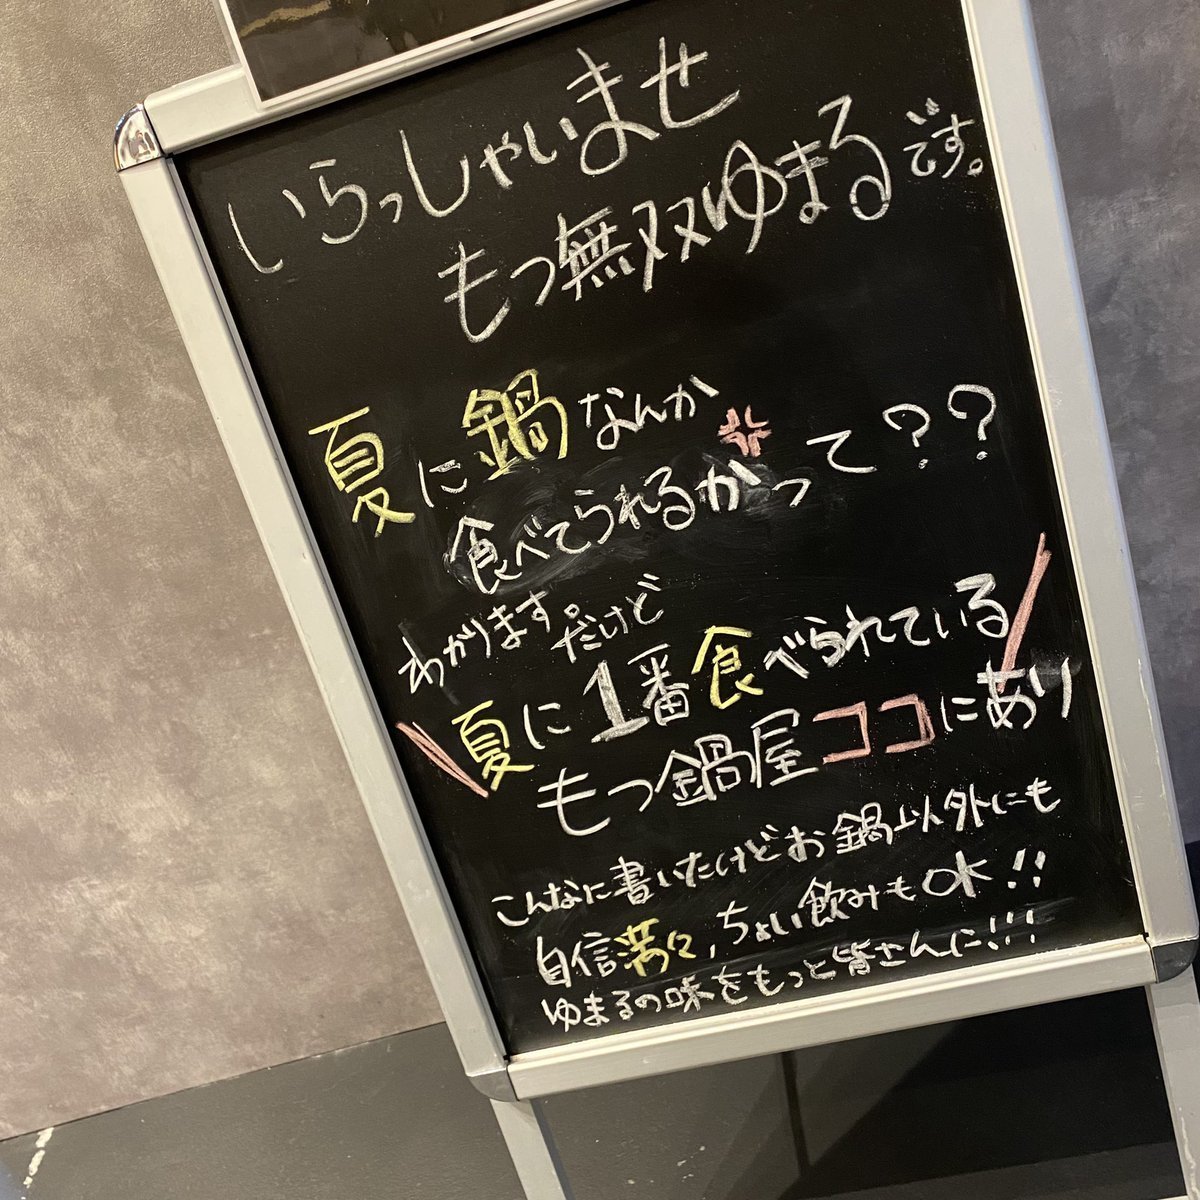 いらっしゃいませ
もつ無双ゆまるです。
夏に鍋なんか
食べてられるかって??
わかります。だけど
夏に1番食べられている
もつ鍋屋ココにあり
こんなに書いたけどお鍋以外にも
自信満々,ちょい飲みもOK!!
ゆまるの味をもっと皆さんに!!!